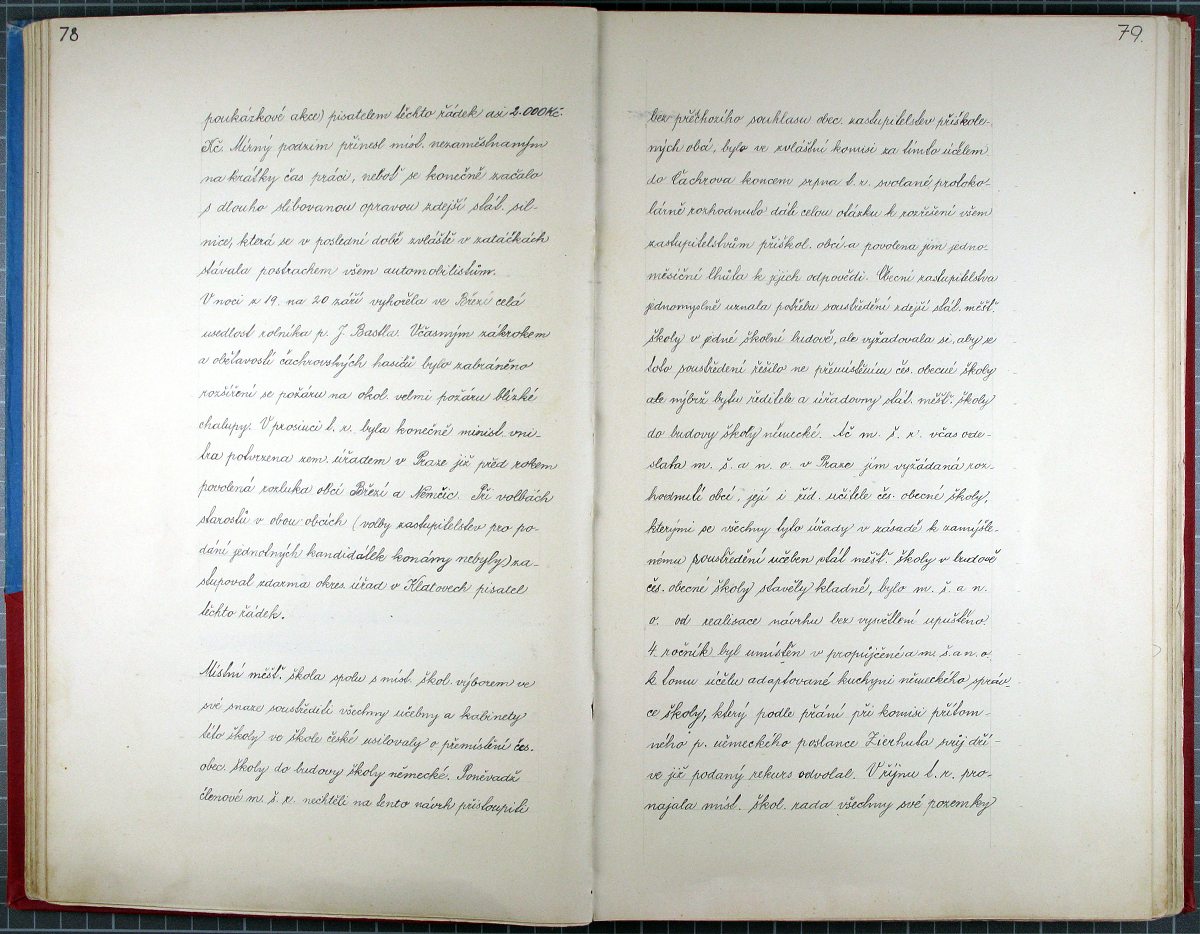 78
poukázkové akce) pisatelem těchto řádek asi 2.000 Kč.
Kč. Mírný podzim přinesl míst. nezaměstnaným
na krátký čas práci, neboť se konečně začalo
s dlouho slibovanou opravou zdejší stát. sil-
nice, která se v poslední době zvláště v zatáčkách
stávala postrachem všem automobilistům.
V noci z 19. na 20 září vyhořela ve Březí celá
usedlost rolníka p. J. Bastla. Včasným zákrokem
a obětavostí čachrovských hasičů bylo zabráněno
rozšíření se požáru na okol. velmi požáru blízké
chalupy. V prosinci t. r. byla konečně minist. vni-
tra potvrzena zem. úřadem v Praze již před rokem
povolená rozluka obcí Březí a Němčic. Při volbách
starostů v obou obcích (volby zastupitelstev pro po-
dání jednotných kandidátek konány nebyly) za-
stupoval zdarma okres. úřad v Klatovech pisatel
těchto řádek.
Místní měšť. škola spolu s míst. škol. výborem ve
své snaze soustřediti všechny učebny a kabinety
této školy ve škole české usilovaly o přemístění čes.
obec. školy do budovy školy německé. Poněvadž
členové m. š. r. nechtěli na tento návrh přistoupiti
79.
bez předchozího souhlasu obec. zastupitelstev přiškole-
ných obcí, bylo ve zvláštní komisi za tímto účelem
do Čachrova koncem srpna t. r. svolané protoko-
lárně rozhodnuto dáti celou otázku k rozřešení všem
zastupitelstvům přiškol. obcí a povolena jim jedno-
měsíční lhůta k jejich odpovědi. Obecní zastupitelstva
jednomyslně uznala potřebu soustředění zdejší stát. měšť.
školy v jedné školní budově, ale vyžadovala si, aby se
toto soustředení řešilo ne přemístěním čes. obecné školy
ale nýbrž bytu ředitele a úřadovny stát. měšť. školy
do budovy školy německé. Ač m. š. r. včas ode-
slala m. š. a n. o. v Praze jím vyžádaná roz-
hodnutí obcí, její i říd. učitele čes. obecné školy,
kterými se všechny tyto úřady v zásadě k zamýšle-
nému soustředění učeben stát měšť. školy v budově
čes. obecné školy stavěly kladně, bylo m. š. a n.
o. od realisace návrhu bez vysvětlení upuštěno.
4. ročník byl umístěn v propůjčené a m. š. a n. o.
k tomu účelu adaptované kuchyni německého správ-
ce školy, který podle přání při komisi přítom-
ného p. německého poslance Zierhuta svůj dří-
ve již podaný rekurs odvolal. V říjnu t. r. pro-
najala míst. škol. rada všechny své pozemky